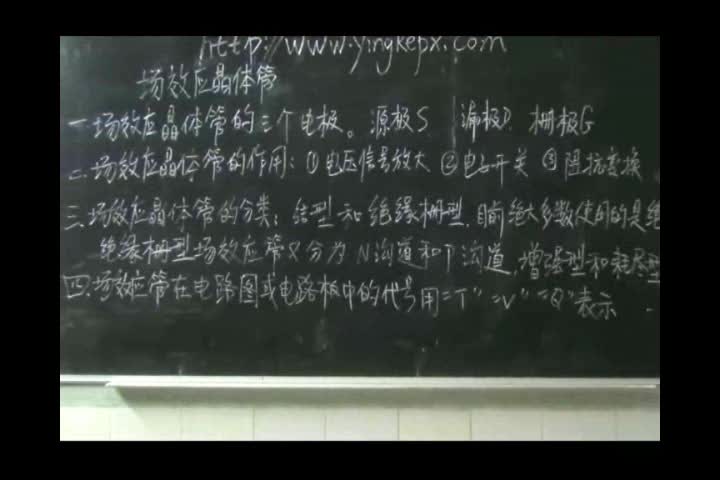 http://www.yingkepx.com
场效应晶体管
一.场效应晶体管的三个电极。源极S 漏极D 栅极G
二.场效应晶体管的作用：①电压信号放大 ②电子开关 ③阻抗变换
三.场效应晶体管的分类：结型和绝缘栅型.目前绝大多数使用的是绝
绝缘栅型场效应管又分为N沟道和P沟道,增强型和耗尽型
四.场效应管在电路图或电路板中的代号用"T" "V" "Q"表示